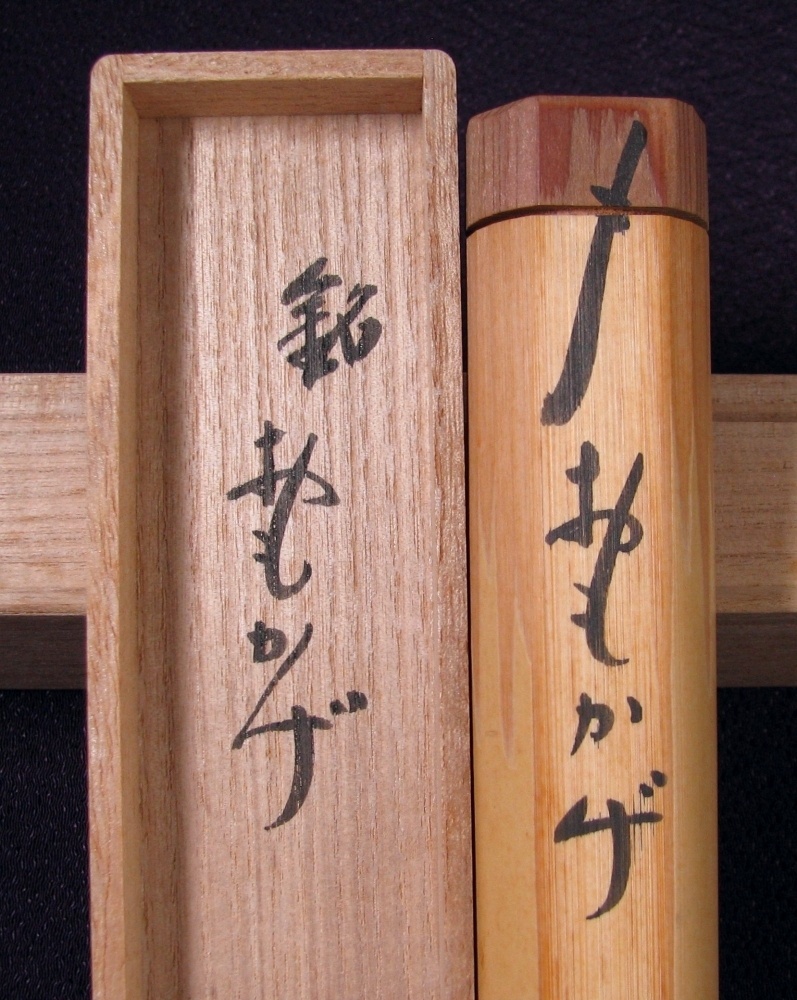 〆おもかげ
銘おもかげ